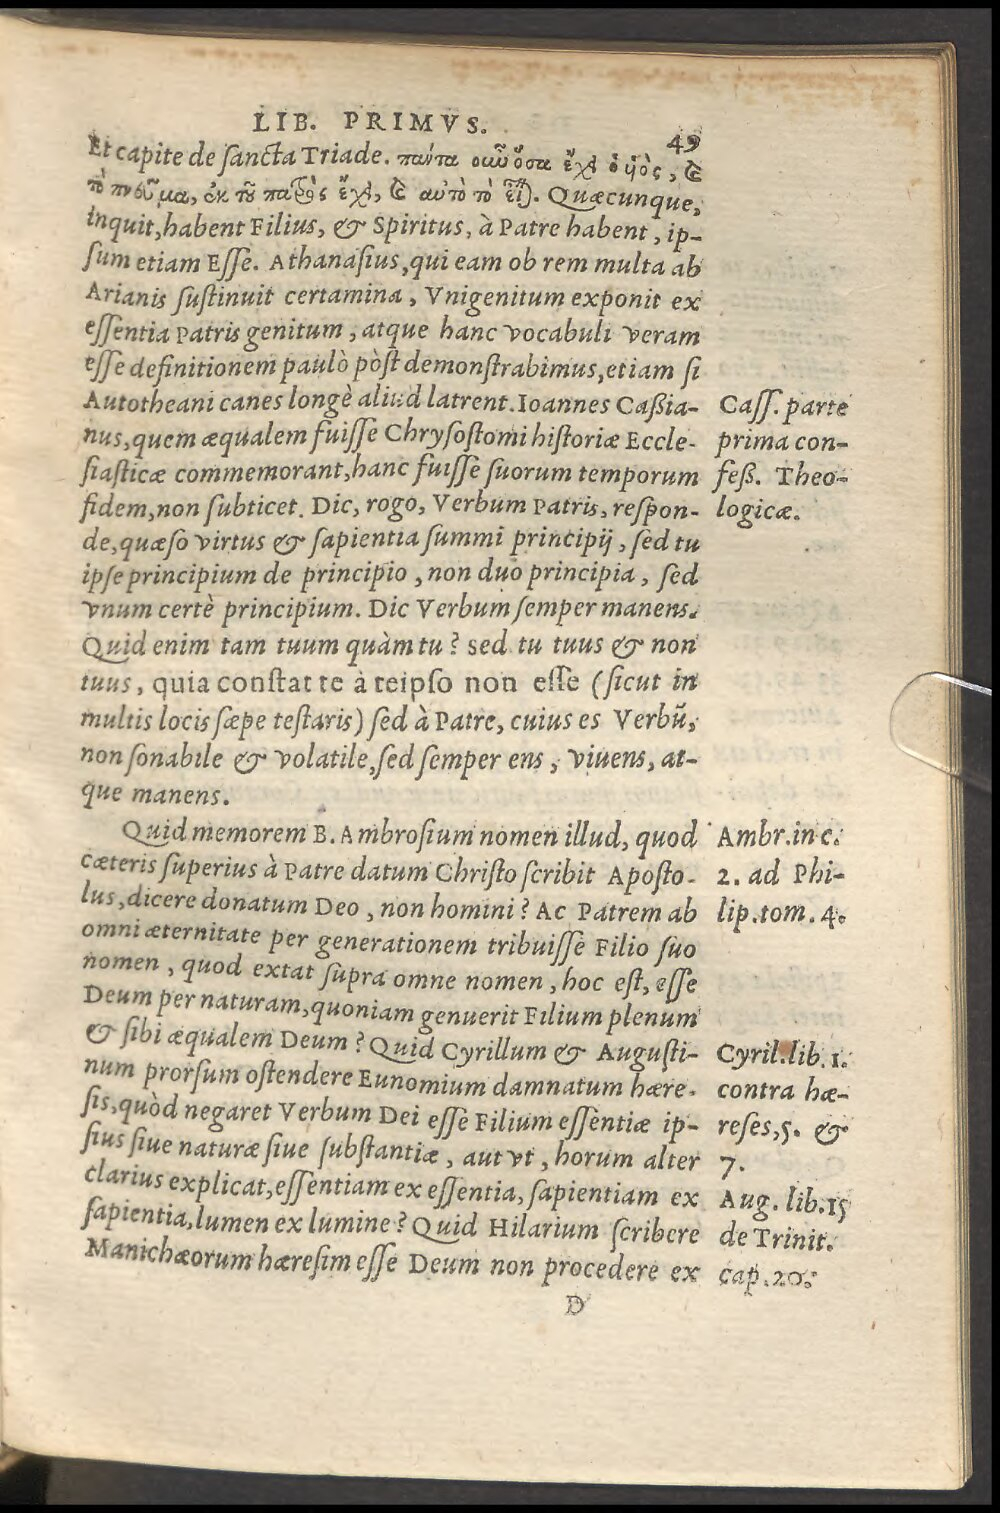 LIB. PRIMVS.
49
Et capite de sancta Triade. πάντα οὖν ὅσα ἔχει ὁ υἱὸς, καὶ
τὸ πνεῦμα, ἐκ τοῦ πατρὸς ἔχει, καὶ αὐτὸ τὸ εἶναι. Quæcunque,
inquit, habent Filius, & Spiritus, à Patre habent, ip-
sum etiam Esse. Athanasius, qui eam ob rem multa ab
Arianis sustinuit certamina, Vnigenitum exponit ex
essentia Patris genitum, atque hanc vocabuli veram
esse definitionem paulò pòst demonstrabimus, etiam si
Autotheani canes longè aliud latrent. Ioannes Caßia-
nus, quem æqualem fuisse Chrysostomi historiæ Eccle-
siasticæ commemorant, hanc fuisse suorum temporum
fidem, non subticet. Dic, rogo, Verbum Patris, respon-
de, quæso virtus & sapientia summi principij, sed tu
ipse principium de principio, non duo principia, sed
vnum certè principium. Dic Verbum semper manens.
Quid enim tam tuum quàm tu? sed tu tuus & non
tuus, quia constat te à teipso non esse (sicut in
multis locis sæpe testaris) sed à Patre, cuius es Verbũ,
non sonabile & volatile, sed semper ens, viuens, at-
que manens.
Cass. parte
prima con-
feß. Theo-
logicæ.
Quid memorem B. Ambrosium nomen illud, quod
cæteris superius à Patre datum Christo scribit Aposto-
lus, dicere donatum Deo, non homini? Ac Patrem ab
omni æternitate per generationem tribuisse Filio suo
nomen, quod extat supra omne nomen, hoc est, esse
Deum per naturam, quoniam genuerit Filium plenum
& sibi æqualem Deum? Quid Cyrillum & Augusti-
num prorsum ostendere Eunomium damnatum hære-
sis, quòd negaret Verbum Dei esse Filium essentiæ ip-
sius siue naturæ siue substantiæ, aut vt, horum alter
clarius explicat, essentiam ex essentia, sapientiam ex
sapientia, lumen ex lumine? Quid Hilarium scribere
Manichæorum hæresim esse Deum non procedere ex
Ambr. in c.
2. ad Phi-
lip. tom. 4.
Cyril. lib. 1.
contra hæ-
reses, 5. &
7.
Aug. lib. 15
de Trinit.
cap. 20.
D